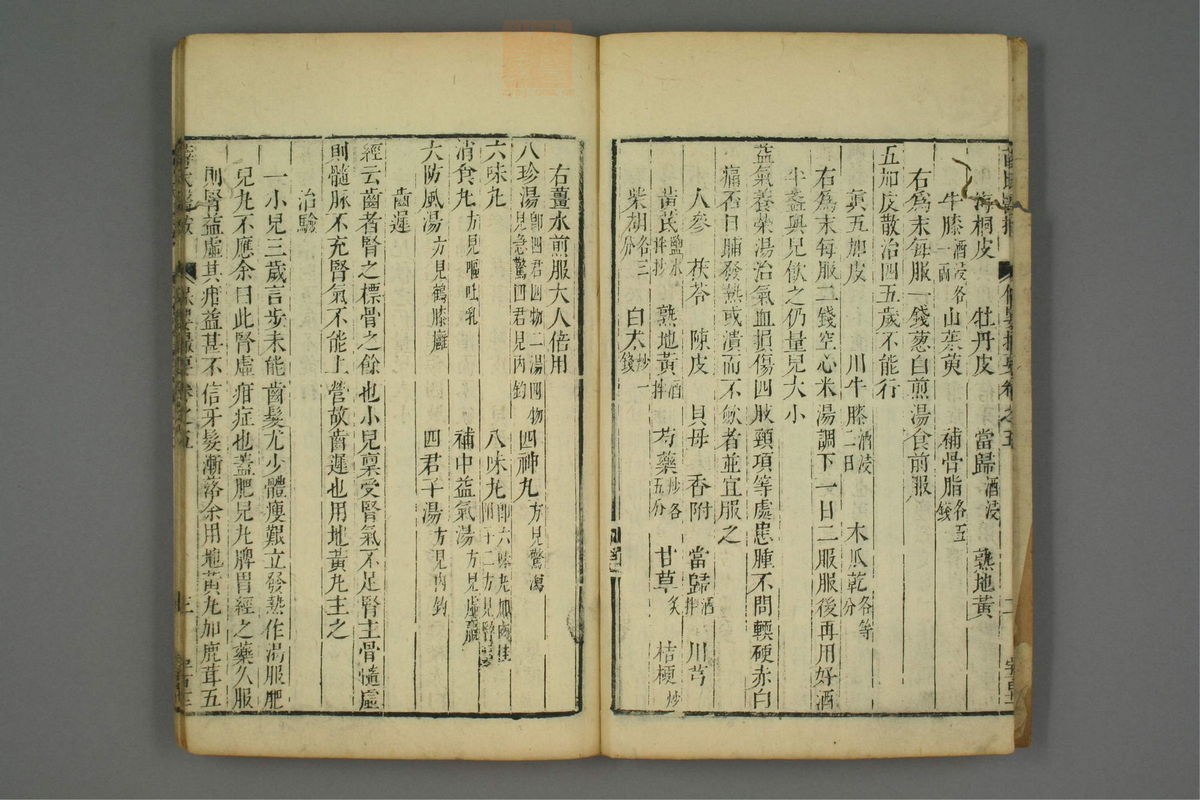 海桐皮 牡丹皮 當歸酒浸 熟地黃
牛膝酒浸各一兩 山茱萸 補骨脂各五錢
右爲末每服一錢葱白煎湯食前服
五加皮散治四五歲不能行
真五加皮 川牛膝酒浸二日 木瓜乾各等分
右爲末每服二錢空心米湯調下一日二服服後再用好酒
半盞與兒飲之仍量兒大小
益氣養榮湯治氣血損傷四肢頸項等處患腫不問輭硬赤白
痛否日晡發熱或潰而不斂者並宜服之
人參 茯苓 陳皮 貝母 香附 當歸酒拌 川芎
黃芪鹽水拌炒 熟地黃酒拌 芍藥炒各五分 甘草炙 桔梗炒
柴胡各三分 白朮炒一錢
右薑水煎服大人倍用
八珍湯即四君四物二湯四物見急驚四君見內釣 四神丸方見驚瀉
六味丸 八味丸即六味丸加肉桂附子二方見腎
消食丸方見嘔吐乳 補中益氣湯方見虛羸
大防風湯方見鶴膝癰 四君子湯方見內釣
齒遲
經云齒者腎之標骨之餘也小兒稟受腎氣不足腎主骨髓虛
則髓脉不充腎氣不能上營故齒遲也用地黃丸主之
治驗
一小兒三歲言步未能齒髮尤少體瘦艱立發熱作渴服肥
兒丸不應余曰此腎虛疳症也蓋肥兒丸脾胃經之藥久服
則腎益虛其疳益甚不信牙髮漸落余用地黃丸加鹿茸五